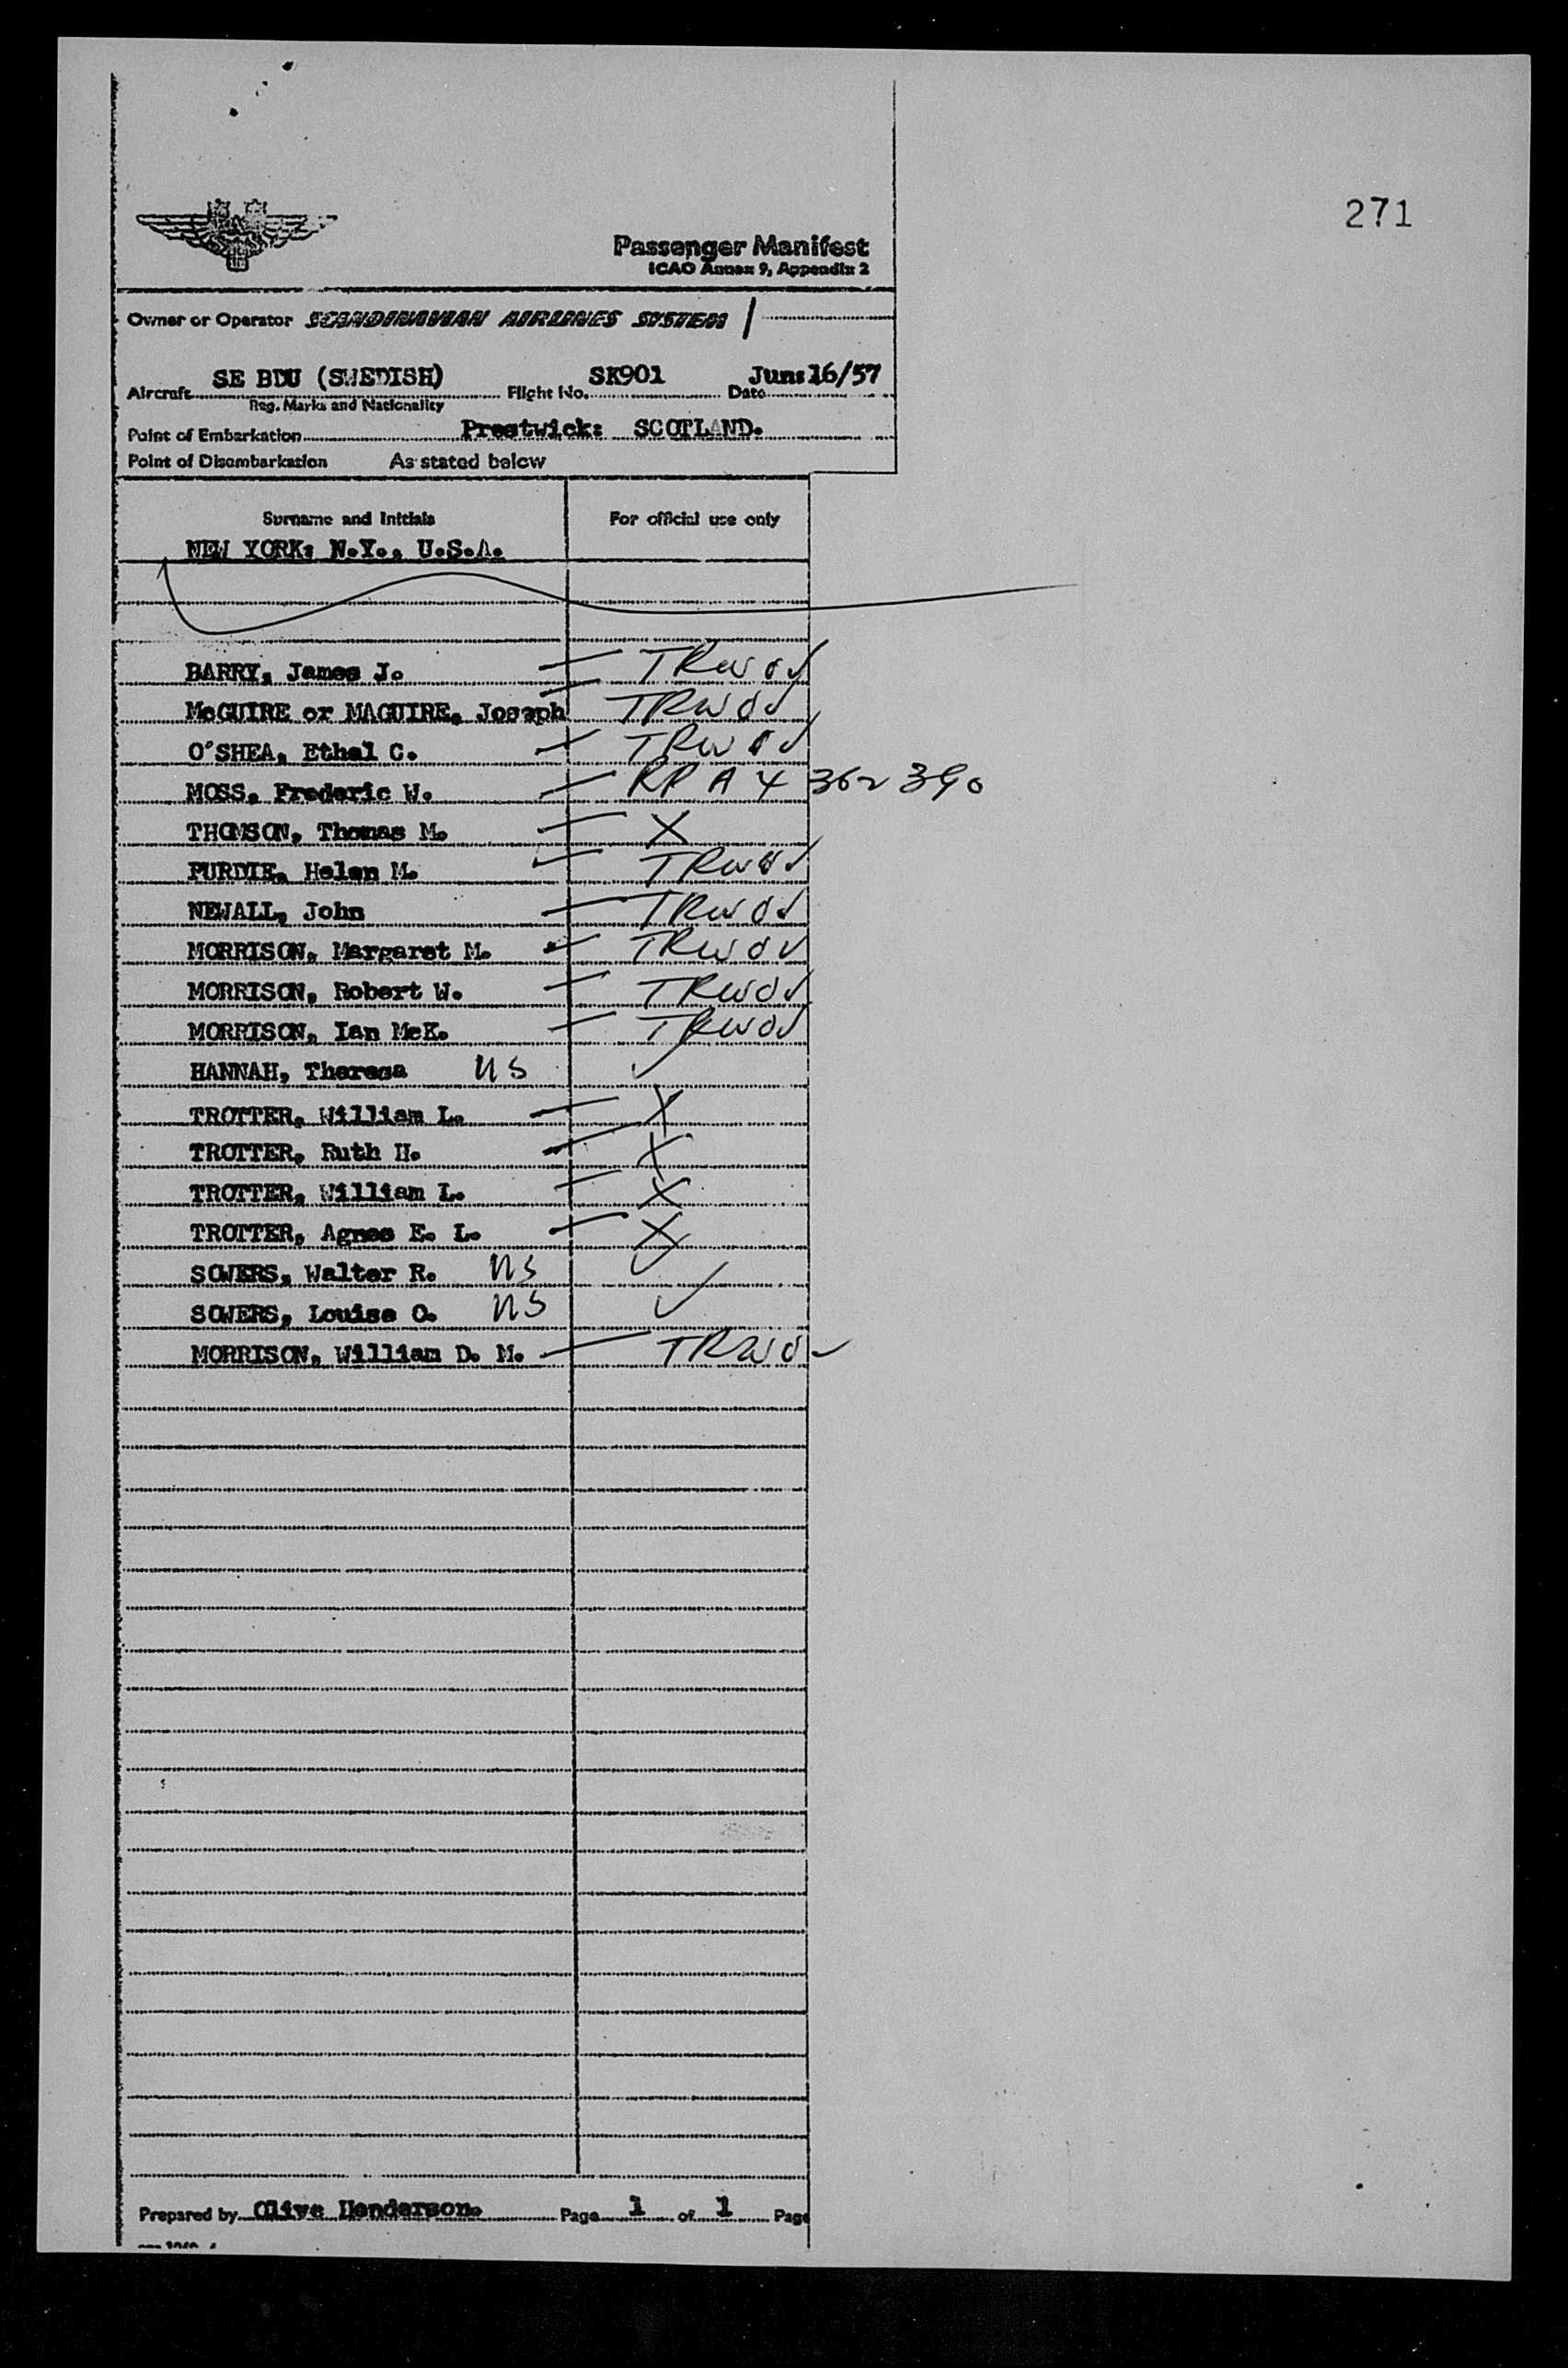 271
Passenger Manifest
ICAO Annex 9, Appendix 2
Owner or Operator SCANDINAVIAN AIRLINES SYSTEM
Aircraft SE BDU (SWEDISH) Flight No. SK901 Date June 16/57
Reg. Marks and Nationality
Point of Embarkation Prestwick: SCOTLAND.
Point of Disembarkation As stated below
Surname and Initials For official use only
NEW YORK: N.Y., U.S.A.
BARRY, James J. TRWOV
McGUIRE or MAGUIRE, Joseph TRWOV
O'SHEA, Ethel C. TRWOV
MOSS, Frederic W. RP A 4 362 390
THOMSON, Thomas M. X
PURDIE, Helen M. TRWOV
NEWALL, John TRWOV
MORRISON, Margaret M. TRWOV
MORRISON, Robert W. TRWOV
MORRISON, Ian McK. TRWOV
HANNAH, Theresa US ✓
TROTTER, William L. X
TROTTER, Ruth H. X
TROTTER, William L. X
TROTTER, Agnes E. L. X
SOWERS, Walter R. US ✓
SOWERS, Louise O. US ✓
MORRISON, William D. M. TRWOV
Prepared by Olive Henderson. Page 1 of 1 Page